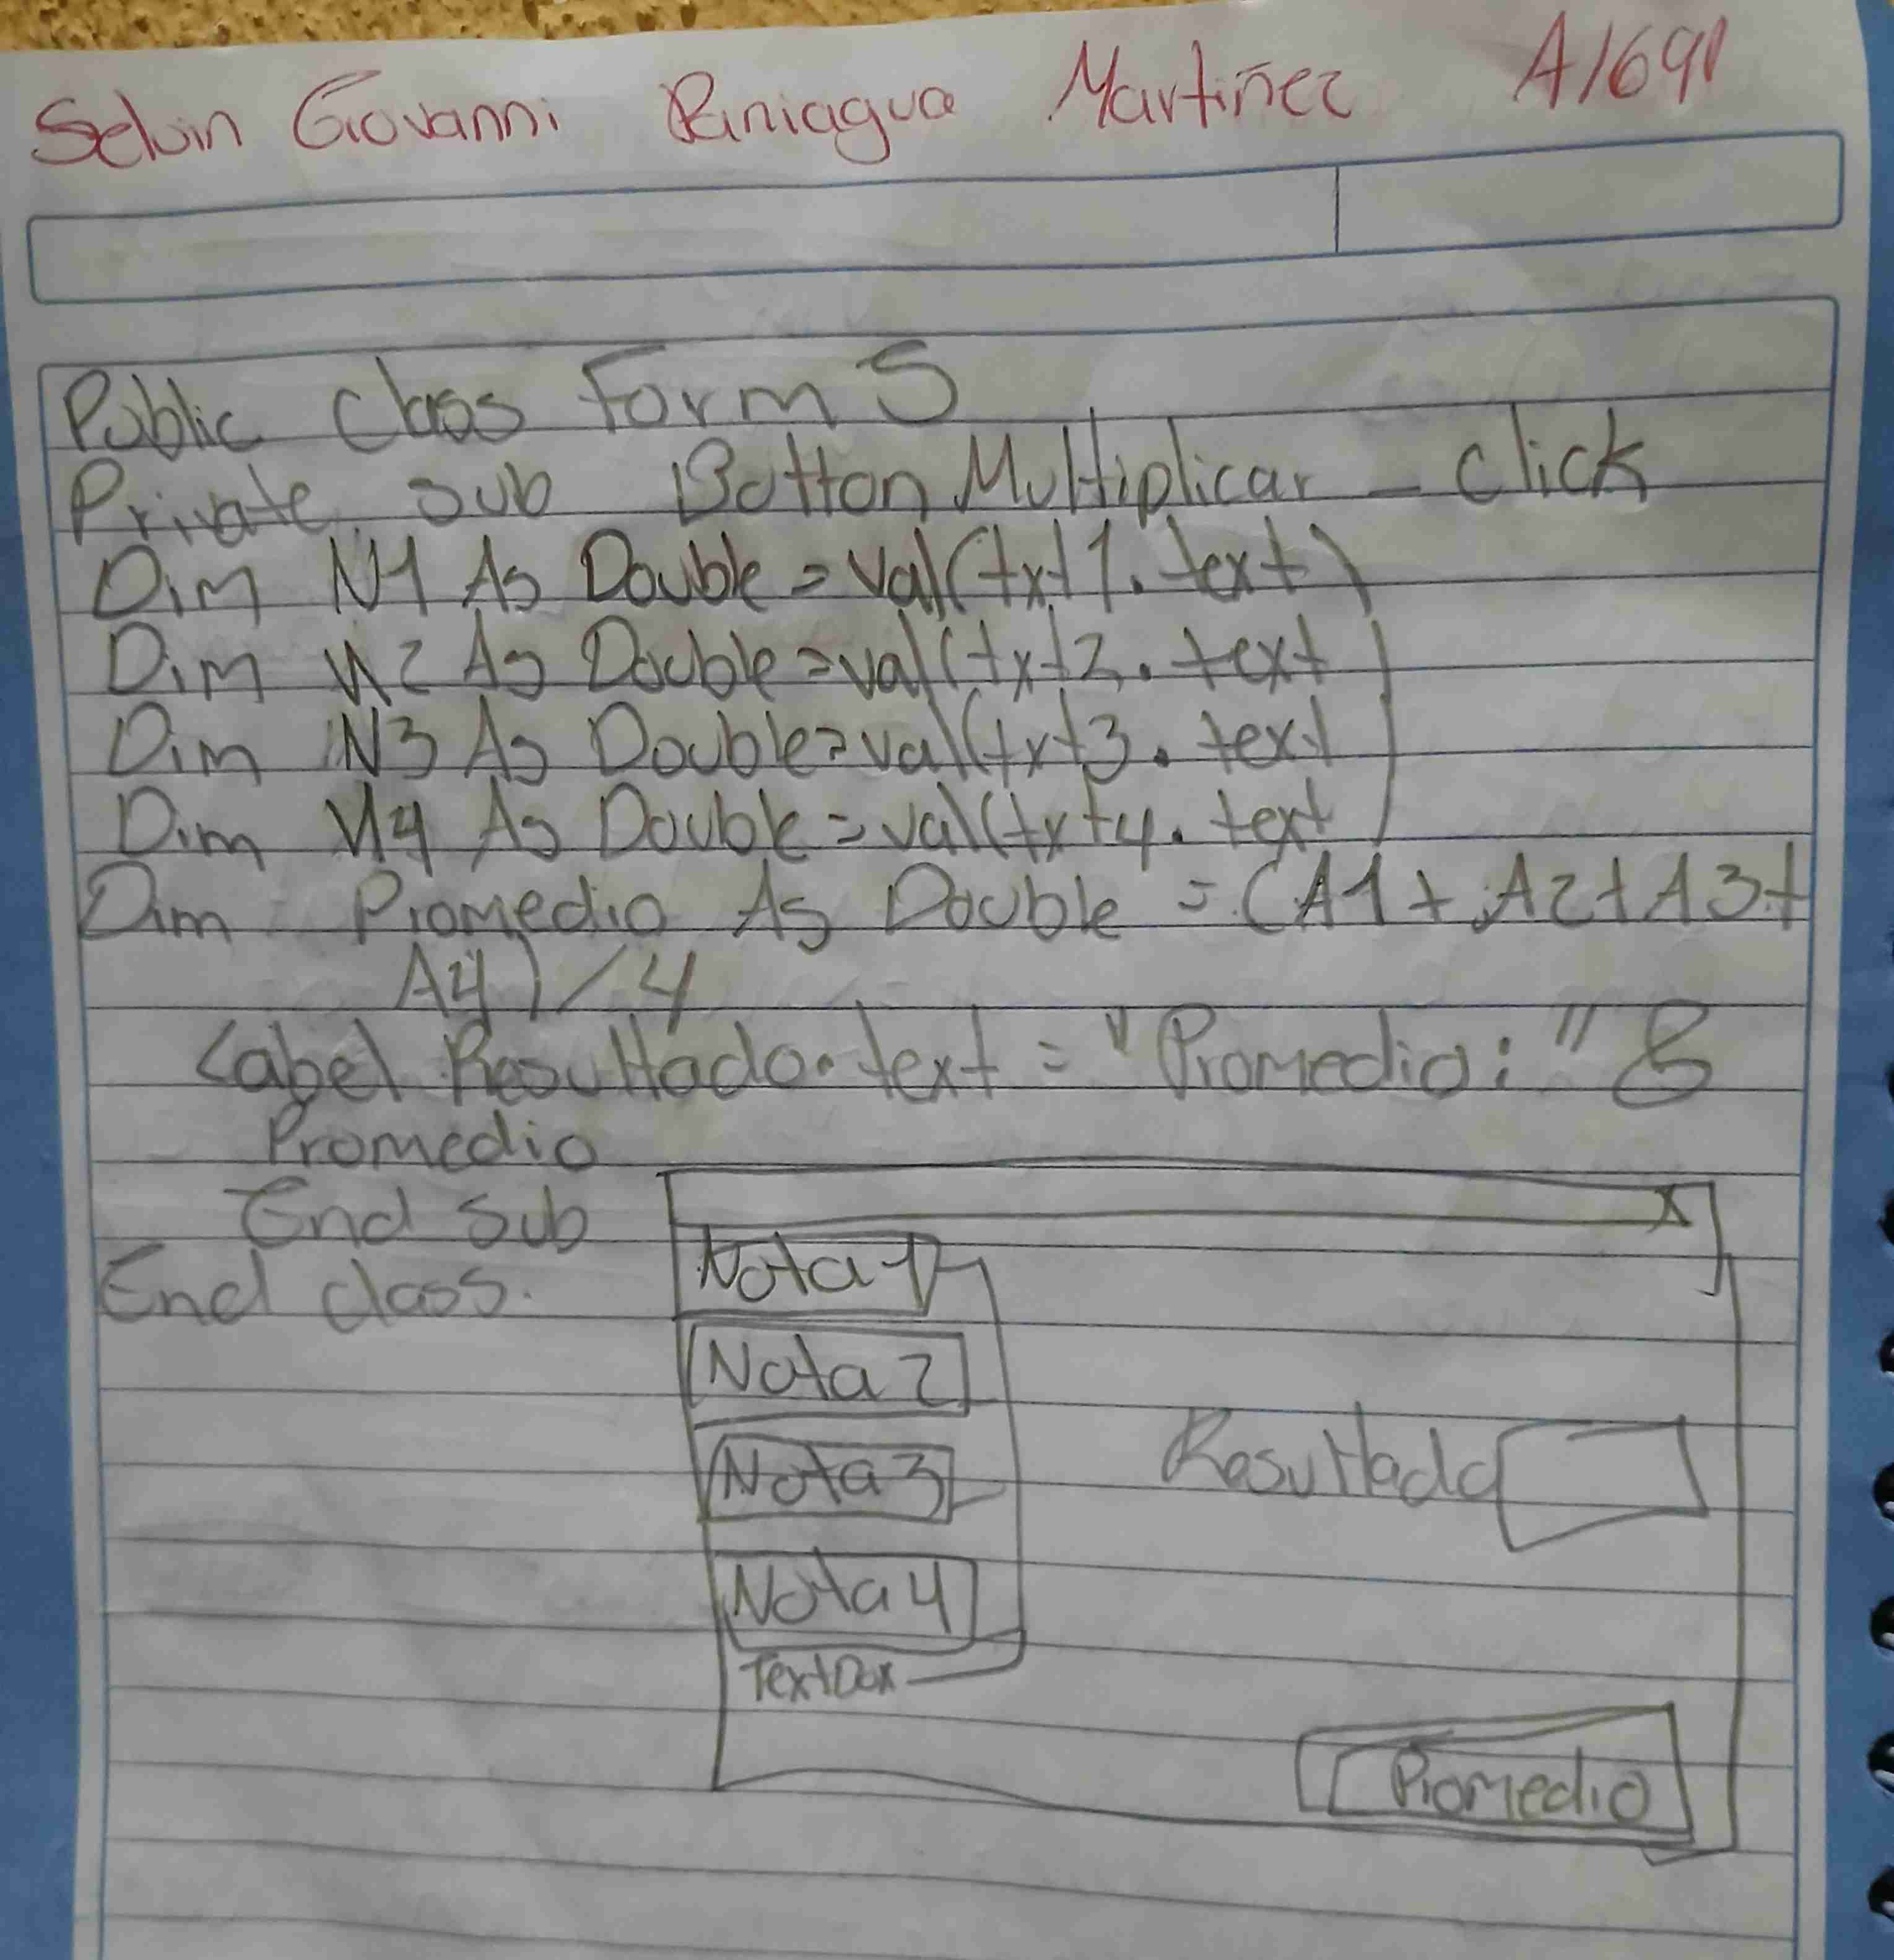 Selvin Giovanni Paniagua Martinez A1691
Public Class Form 5
Private sub Button Multiplicar - click
Dim N1 As Double = val(txt1. text)
Dim N2 As Double = val(txt2. text)
Dim N3 As Double = val(txt3. text)
Dim N4 As Double = val(txt4. text)
Dim Promedio As Double = (A1 + A2 + A3 +
A4) / 4
Label Resultado. text = "Promedio: " &
Promedio
End sub
End class.
X
Nota 1
Nota 2
Nota 3
Resultado
Nota 4
TextBox
Promedio